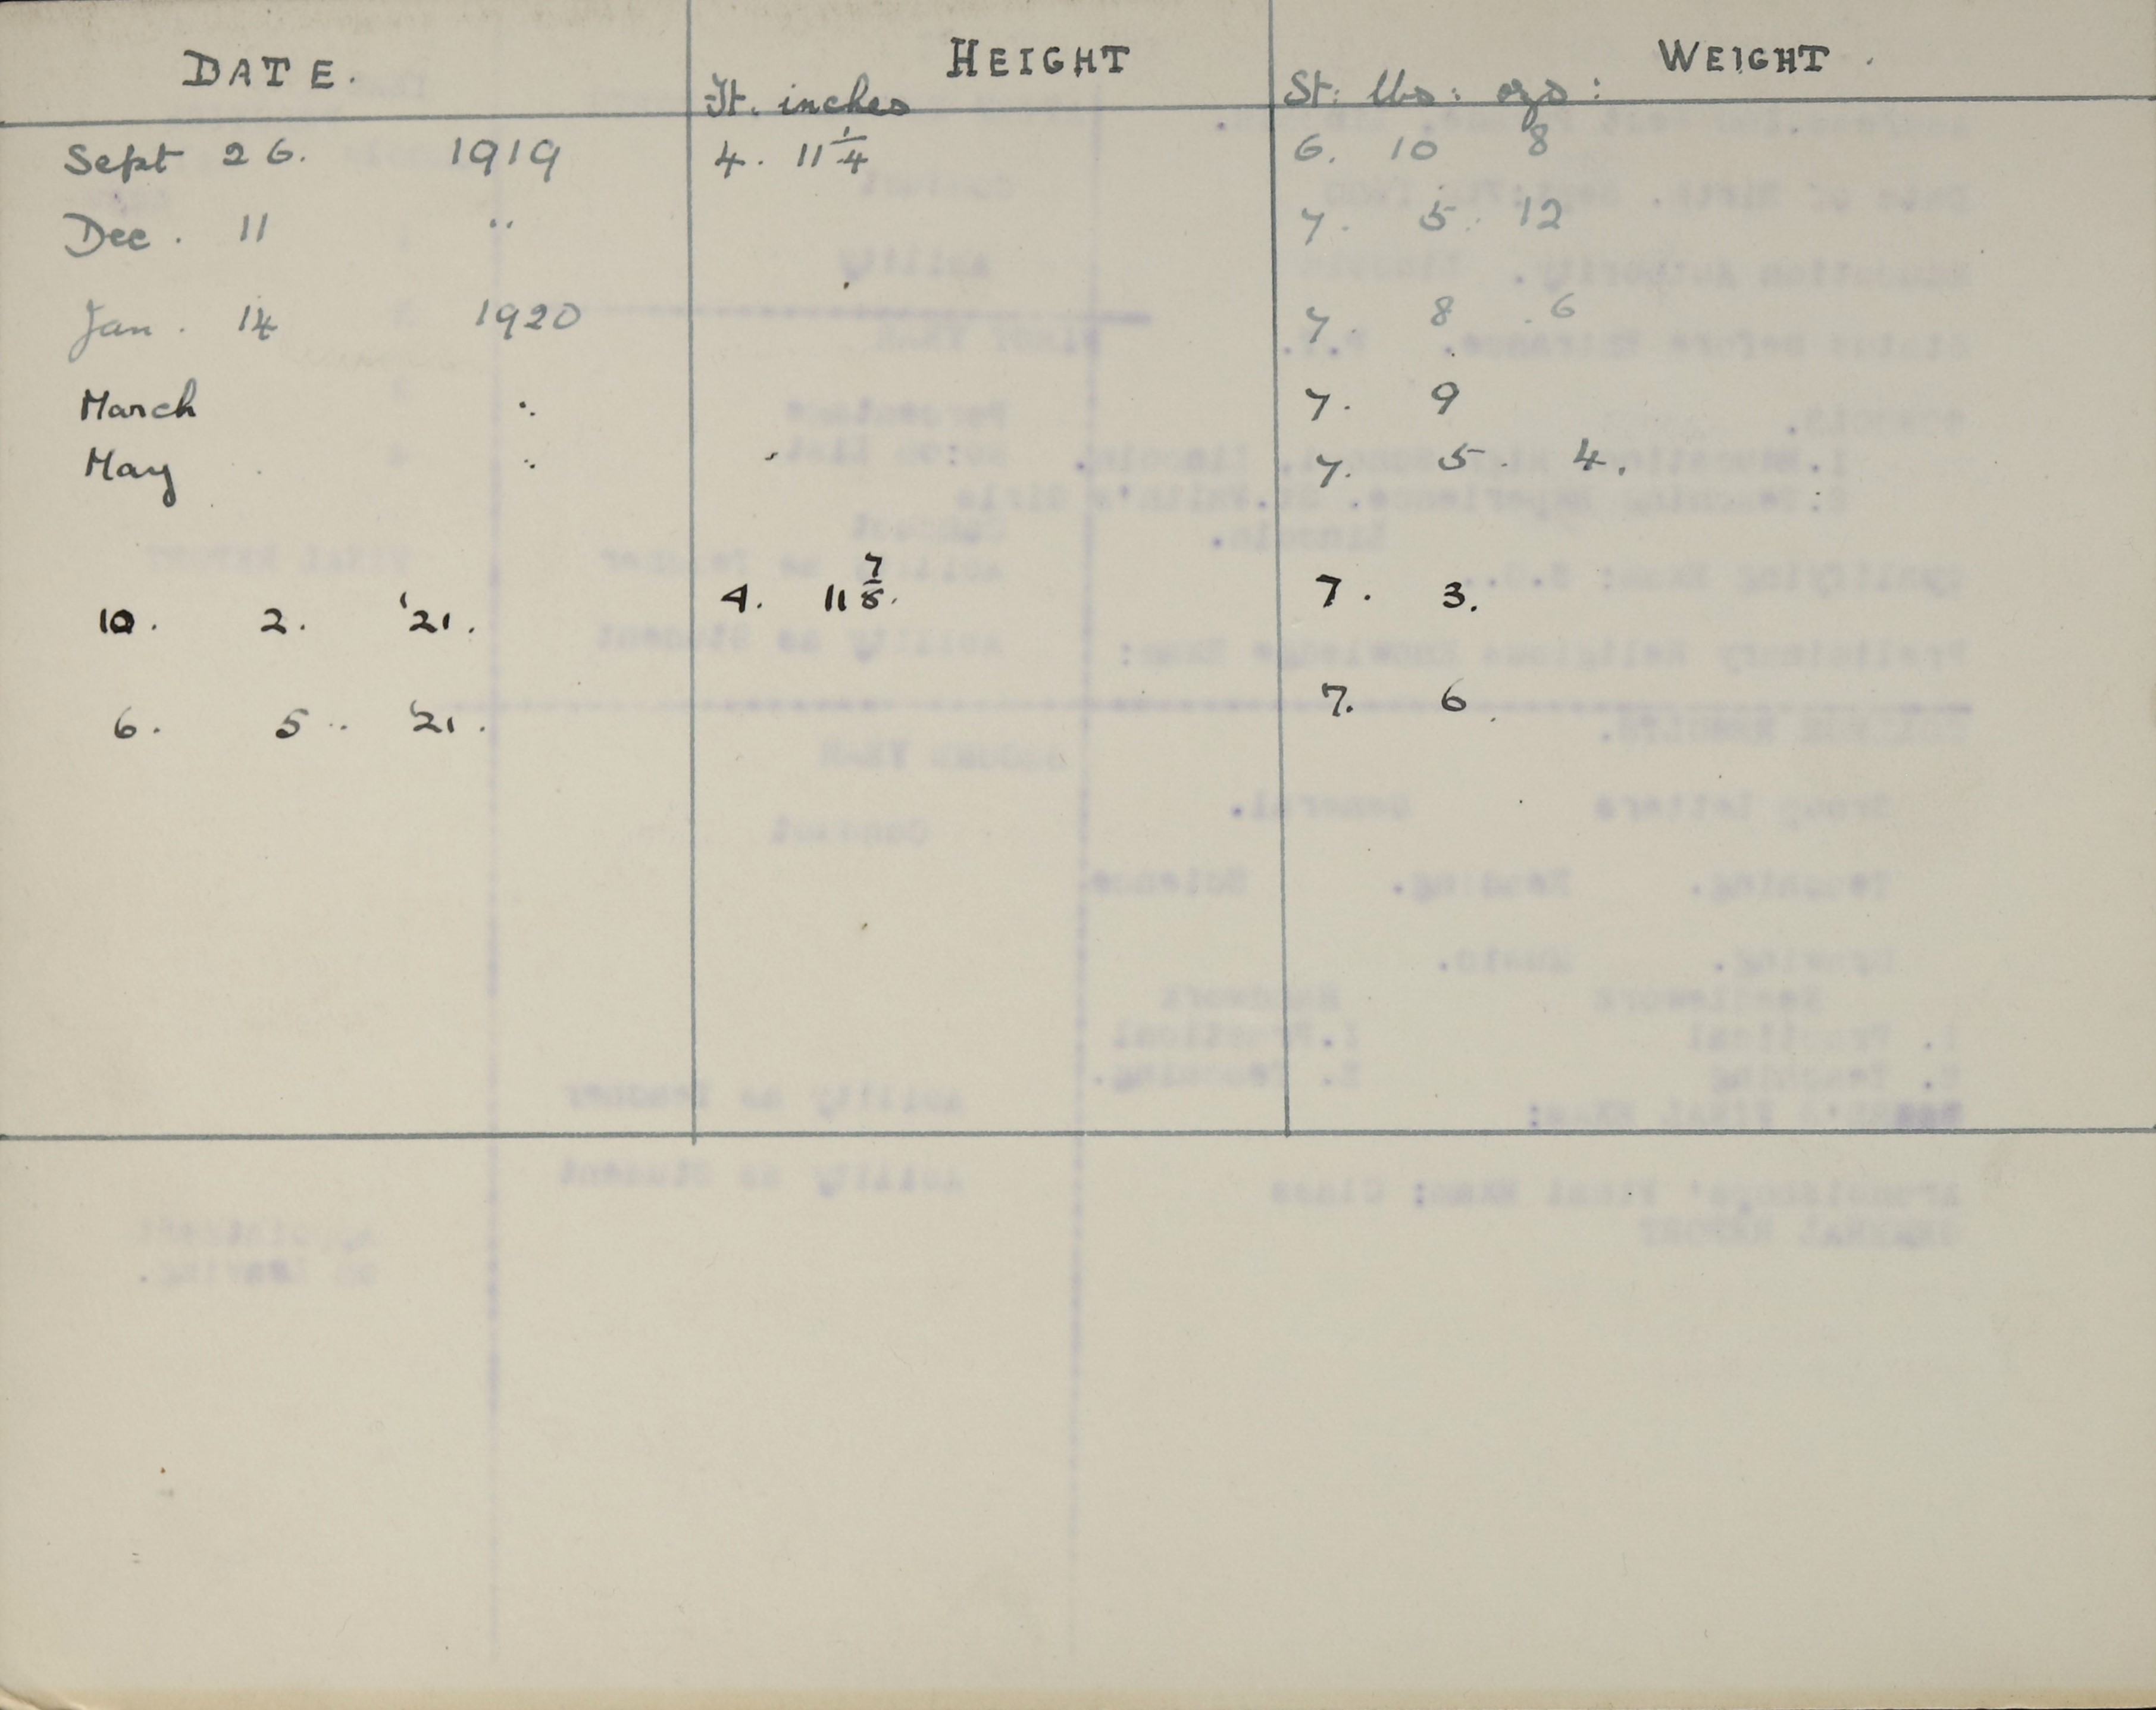 DATE. HEIGHT WEIGHT.
Ft. inches St: lbs: ozs:
Sept 26. 1919 4. 11 1/4 6. 10 8
Dec. 11 " 7. 5. 12
Jan. 14 1920 7. 8 6
March " 7. 9
May " 7. 5. 4.
10. 2. '21. 4. 11 7/8. 7. 3.
6. 5. '21. 7. 6.